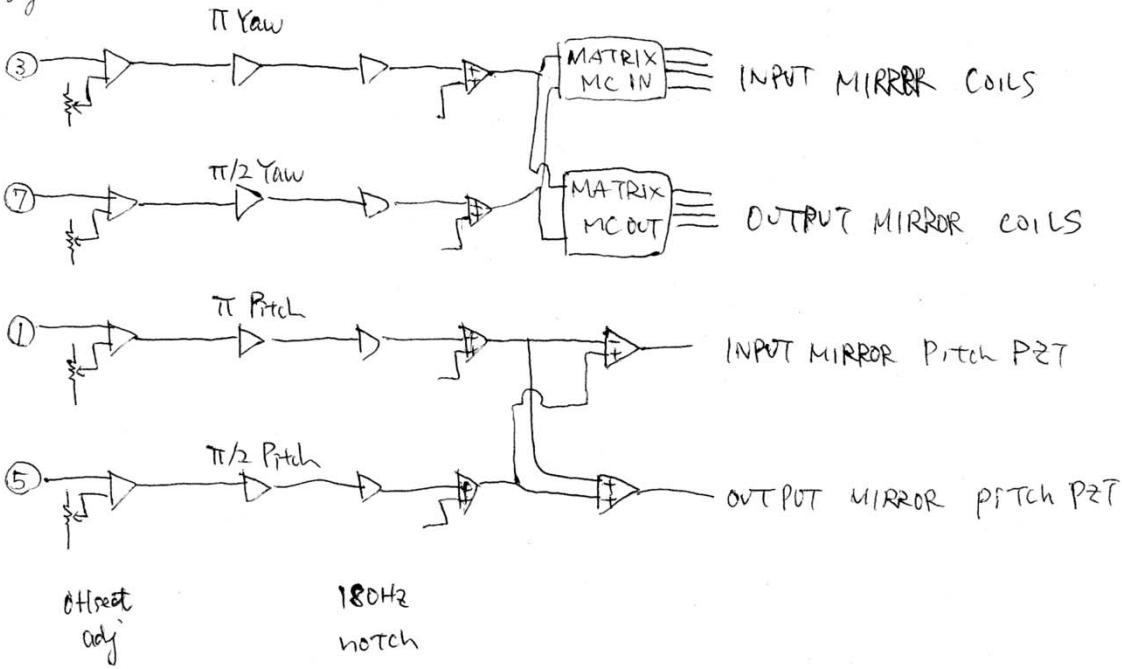 π Yaw
③
MATRIX
MC IN
INPUT MIRROR COILS
π/2 Yaw
⑦
MATRIX
MC OUT
OUTPUT MIRROR COILS
π Pitch
①
INPUT MIRROR Pitch PZT
π/2 Pitch
⑤
OUTPUT MIRROR PiTch PZT
offset
adj
180Hz
notch